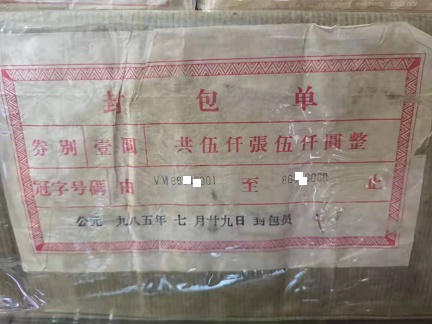 封包单
券别 壹圆 共伍仟張伍仟圓整
冠字号碼 由 VM88 001 至 86 000 止
公元 一九八五年 七 月 廿九日 封包员